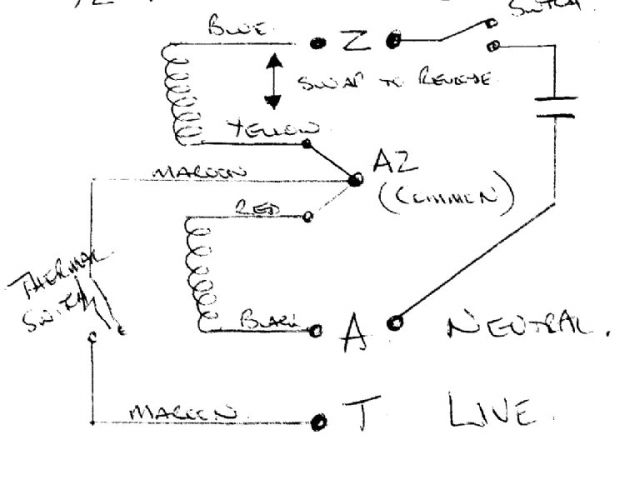 Switch.
BLUE
Z
SWAP TO REVERSE
YELLOW
AZ
(COMMON)
MAROON
RED
THERMAL
SWITCH
BLACK
A
NEUTRAL.
MAROON
T
LIVE.